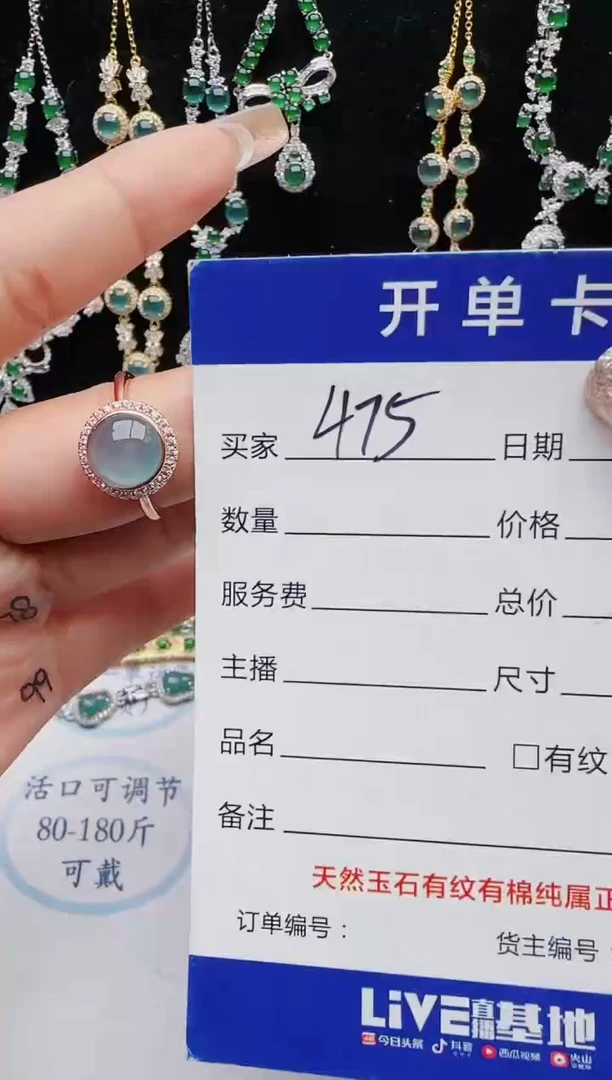 开单卡
买家 475 日期
数量 价格
服务费 总价
主播 尺寸
品名 □有纹
备注
天然玉石有纹有棉纯属正
订单编号：
货主编号
LiVE直播基地
今日头条 抖音 西瓜视频 火山
99
活口可调节
80-180斤
可戴